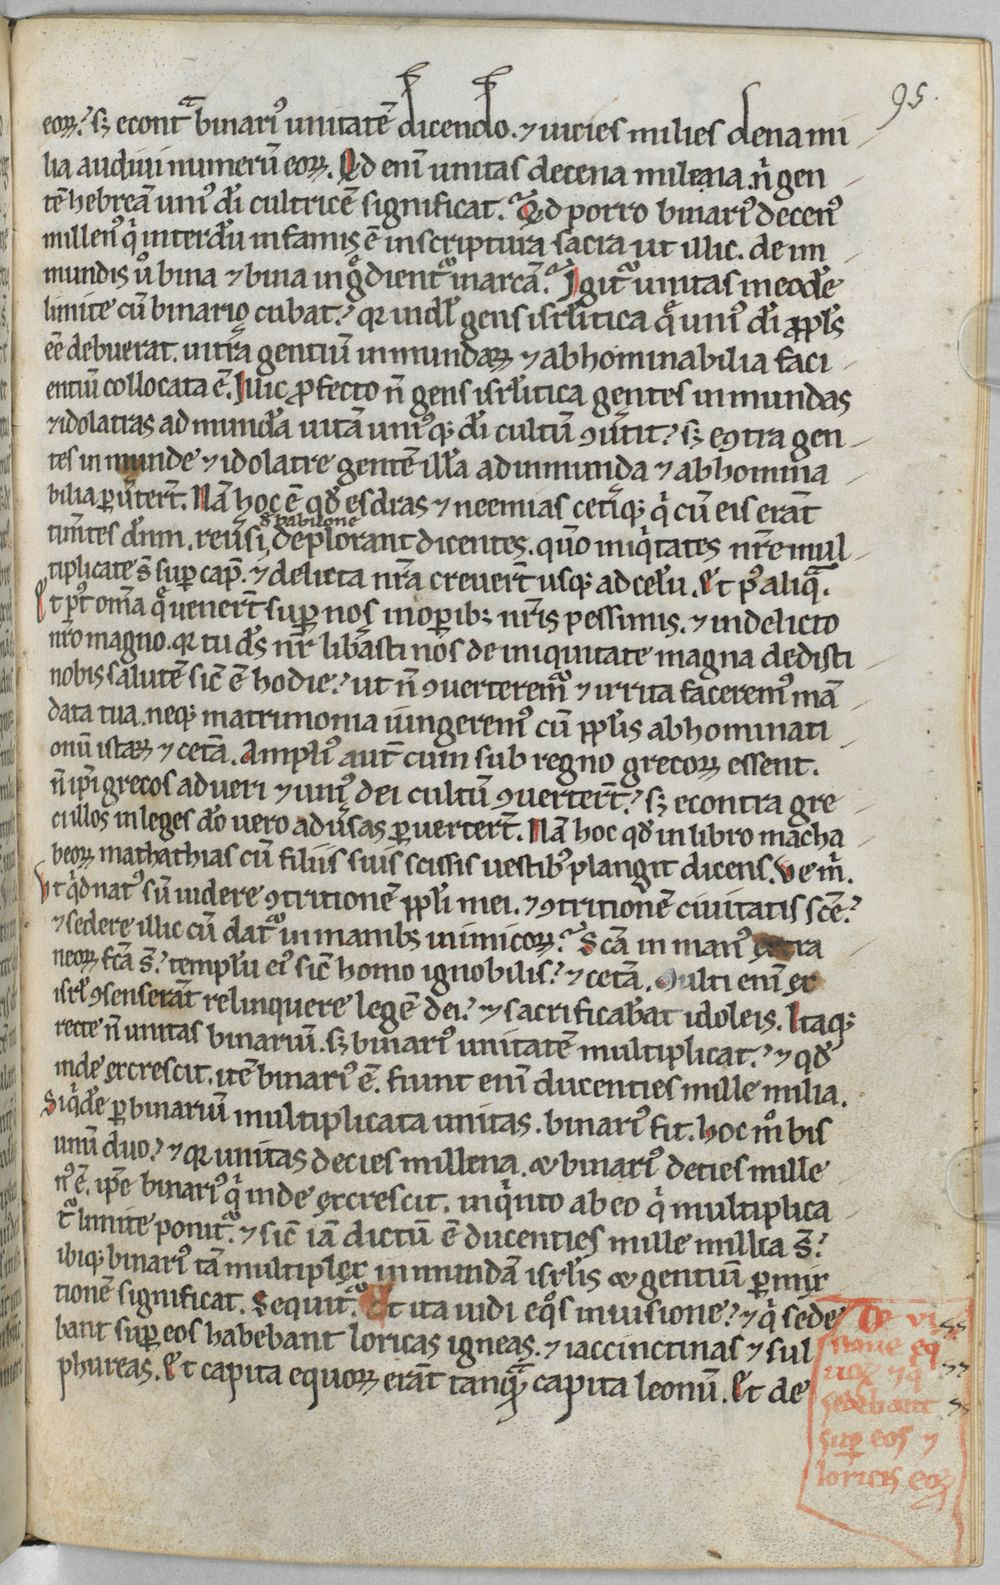 95.
eoꝝ? sꝫ econtᷓ binariꝰ unitatē dicendo. ⁊ uicies milies dena mi
lia audiui numerū eoꝝ. Qd enī unitas decena milenia .n̄ gen
tē hebreā uniꝰ dı̄ cultricē significat. Qd porro binariꝰ decenꝰ
millenꝰ qͥ interdū infamis ē in scriptura sacra ut illic. de im
mundis ů bina ⁊ bina ingᷓdientᷣ in arcā. Igitᷣ unitas in eodē
limite cū binario cubat? qꝛ uidł gens isrł̓itica q̄ uniꝰ dı̄ ppl̓s
eē debuerat. intra gentiū inmundaꝝ ⁊ abhominabilia faci
entiū collocata ē. Illic ꝓfecto n̄ gens isrł̓itica gentes inmundas
⁊ idolatras ad mundā uitā uniꝰqꝫ dı̄ cultū ꝯuͥtit? sꝫ eꝯtra gen
tes inmunde ⁊ idolatre gentē illā ad inmunda ⁊ abhomina
bilia ꝑuert̄ert. Nā hoc ē qd̄ esdras ⁊ neemias ceteͥqꝫ qͥ cū eis erāt
tim̄tes dn̄m. reuͥsi de babilone deplorant dicentes. qm̄o iniqͥtates nr̄e mul
tiplicate s̄ suꝑ cap̄. ⁊ delicta nr̄a creuer̄t usqꝫ ad celū. Et p̓ aliqᷓ.
Et p̓t om̄a q̄ uener̄t suꝑ nos in oꝑibꝫ nr̄is pessimis. ⁊ in delicto
nr̄o magno. qꝛ tu dr̄s nr̄ libasti nos de iniquitate magna dedisti
nobis salutē sic̄ ē hodie? ut n̄ ꝯuerteremᷣ ⁊ irrita faceremꝰ mā
data tua. neqꝫ matrimonia iungeremꝰ cū ppl̓is abhominati
onū istaꝝ ⁊ cetā. Ampliꝰ aut̄ cum sub regno grecoꝝ essent.
n̄ ip̄i grecos ad ueri ⁊ uniꝰ dei cultū ꝯuerter̄t? sꝫ econtra gre
ci illos in leges dō uero aduͥsas ꝑuerter̄t. Nā hoc qd̄ in libro macha
beoꝝ mathathias cū filiis suis scissis uestibꝰ plangit dicens. Ve m̄.
Vt qͥd natꝰ sū uidere ꝯtritionē ppl̓i mei. ⁊ ꝯtritionē ciuitatis sc̄e?
⁊ sedere illic cū datᷣ in manibꝫ inimicoꝝ. Sc̄a in manꝰ extra
neoꝝ fc̄a s̄? templū eiꝰ sic̄ homo ignobilis? ⁊ cetā. Multi enī ex
isrł ꝯsenserāt relinquere legē dei? ⁊ sacrificabāt idoleis. Itaqꝫ
recte n̄ unitas binariū. sꝫ binariꝰ unitatē multiplicat? ⁊ qd̄
inde excrescit. itē binariꝰ ē. Fiunt enī ducenties mille milia.
Siqͥdē ꝑ binariū multiplicata unitas. binariꝰ fit. hoc m̊ bis
unū duo? ⁊ qꝛ unitas decies millena. ⁊ binariꝰ decies mille
nꝰ ē. ip̄e binariꝰ qͥ inde excrescit. in qͥnto ab eo qͥ multiplica
tᷣ limite ponitᷣ. ⁊ sic̄ iā dictū ē ducenties mille millia s̄?
ibiqꝫ binariꝰ tā multiplex inmundā isrł̓is ⁊ gentiū ꝑmix
tionē significat. Sequitᷣ. Et ita uidi eqͦs in uisione? ⁊ qͥ sede
bant suꝑ eos habebant loricas igneas. ⁊ iaccinctinas ⁊ sul
phureas. Et capita equoꝝ erāt tanqᷓ capita leonū. Et de
De vi
sione eq
uoꝝ ⁊ qͥ
sedebant
suꝑ eos ⁊
loricis eoꝝ